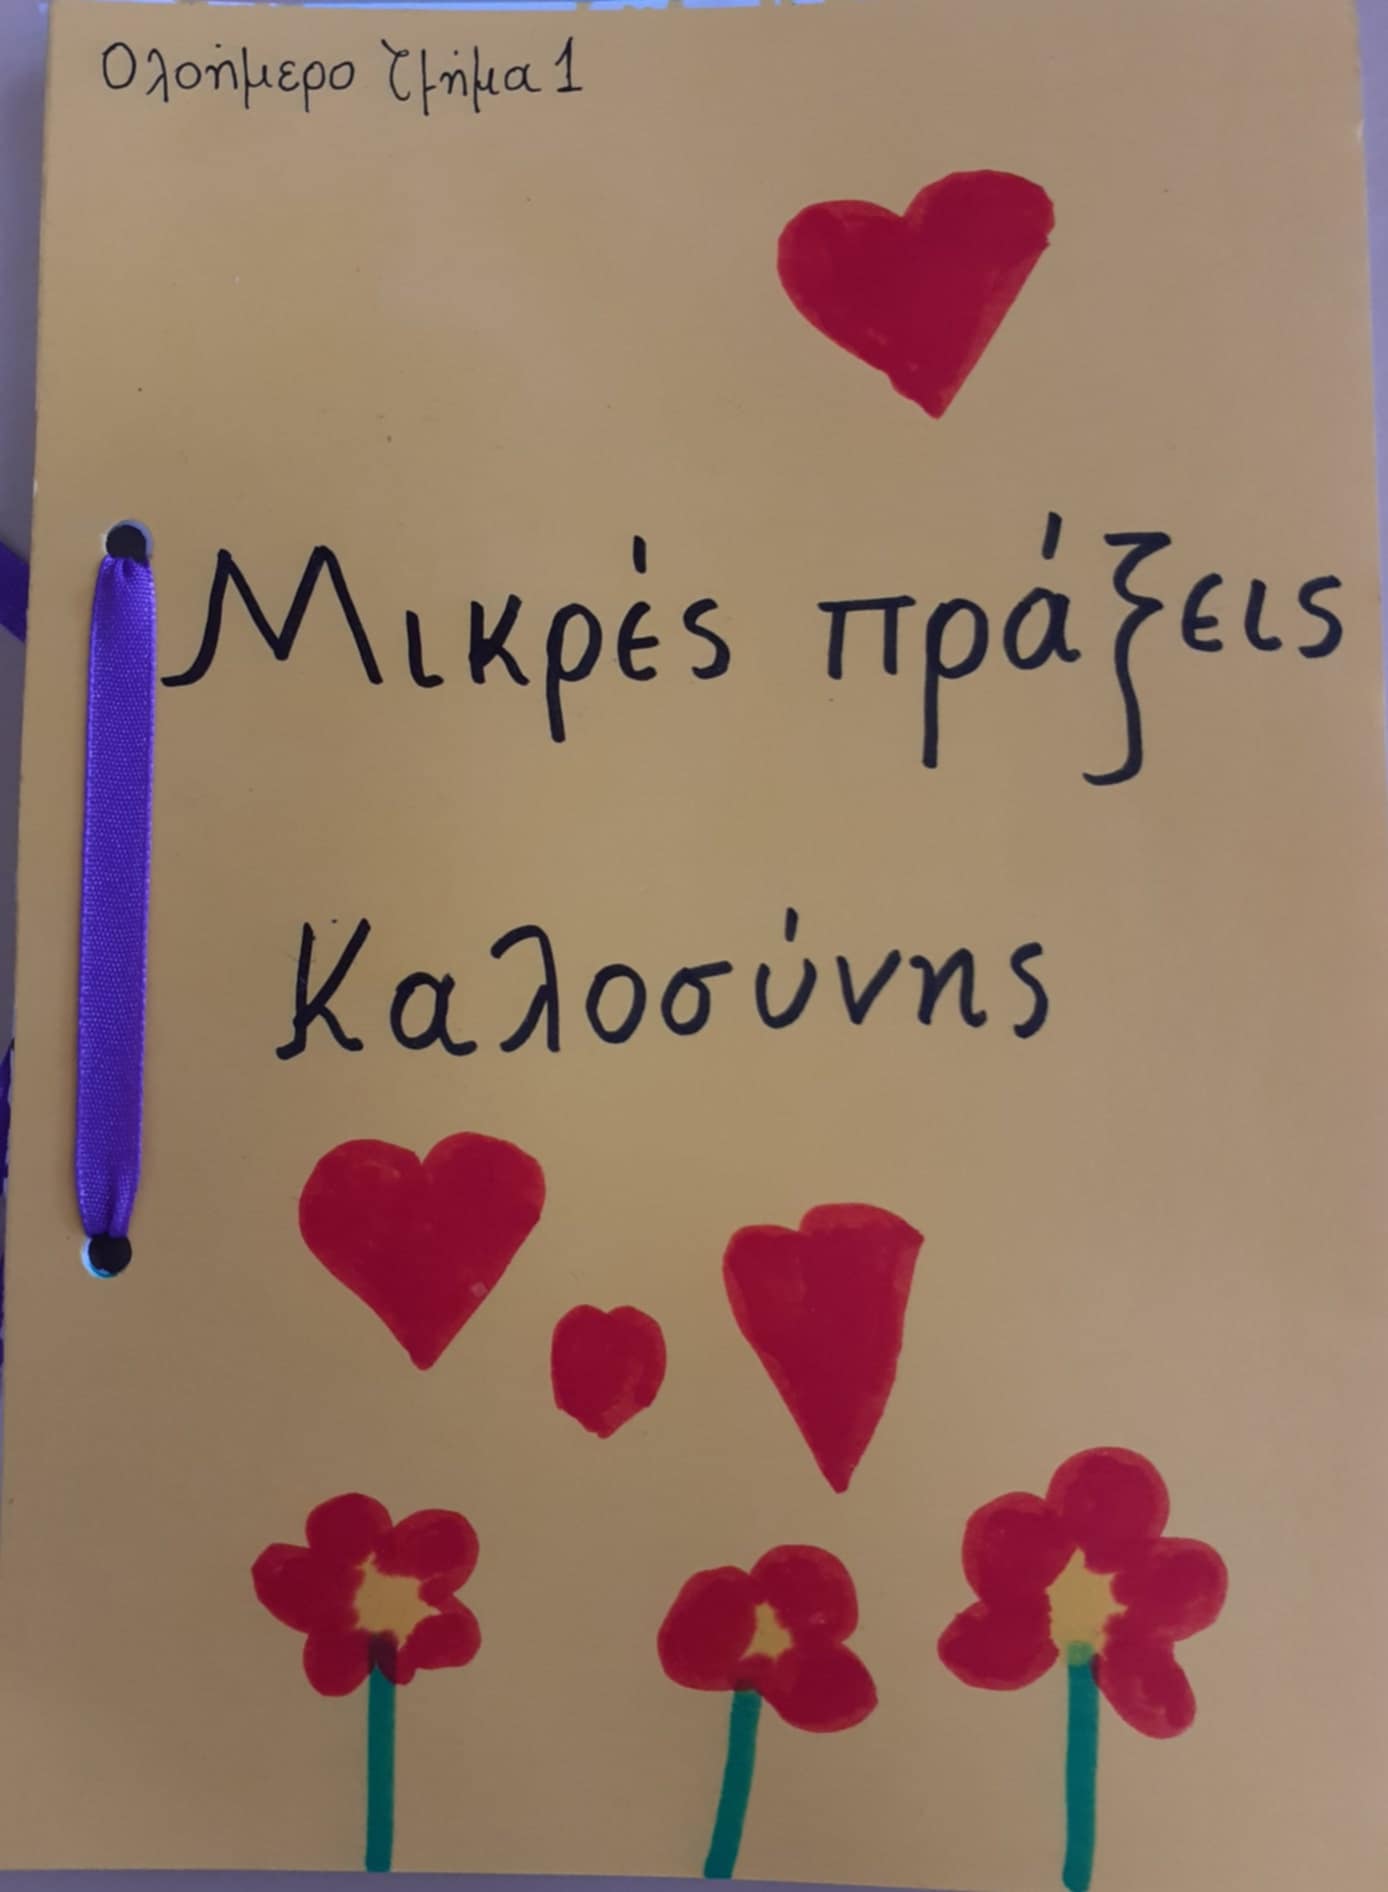 Ολοήμερο τμήμα 1
Μικρές πράξεις
Καλοσύνης